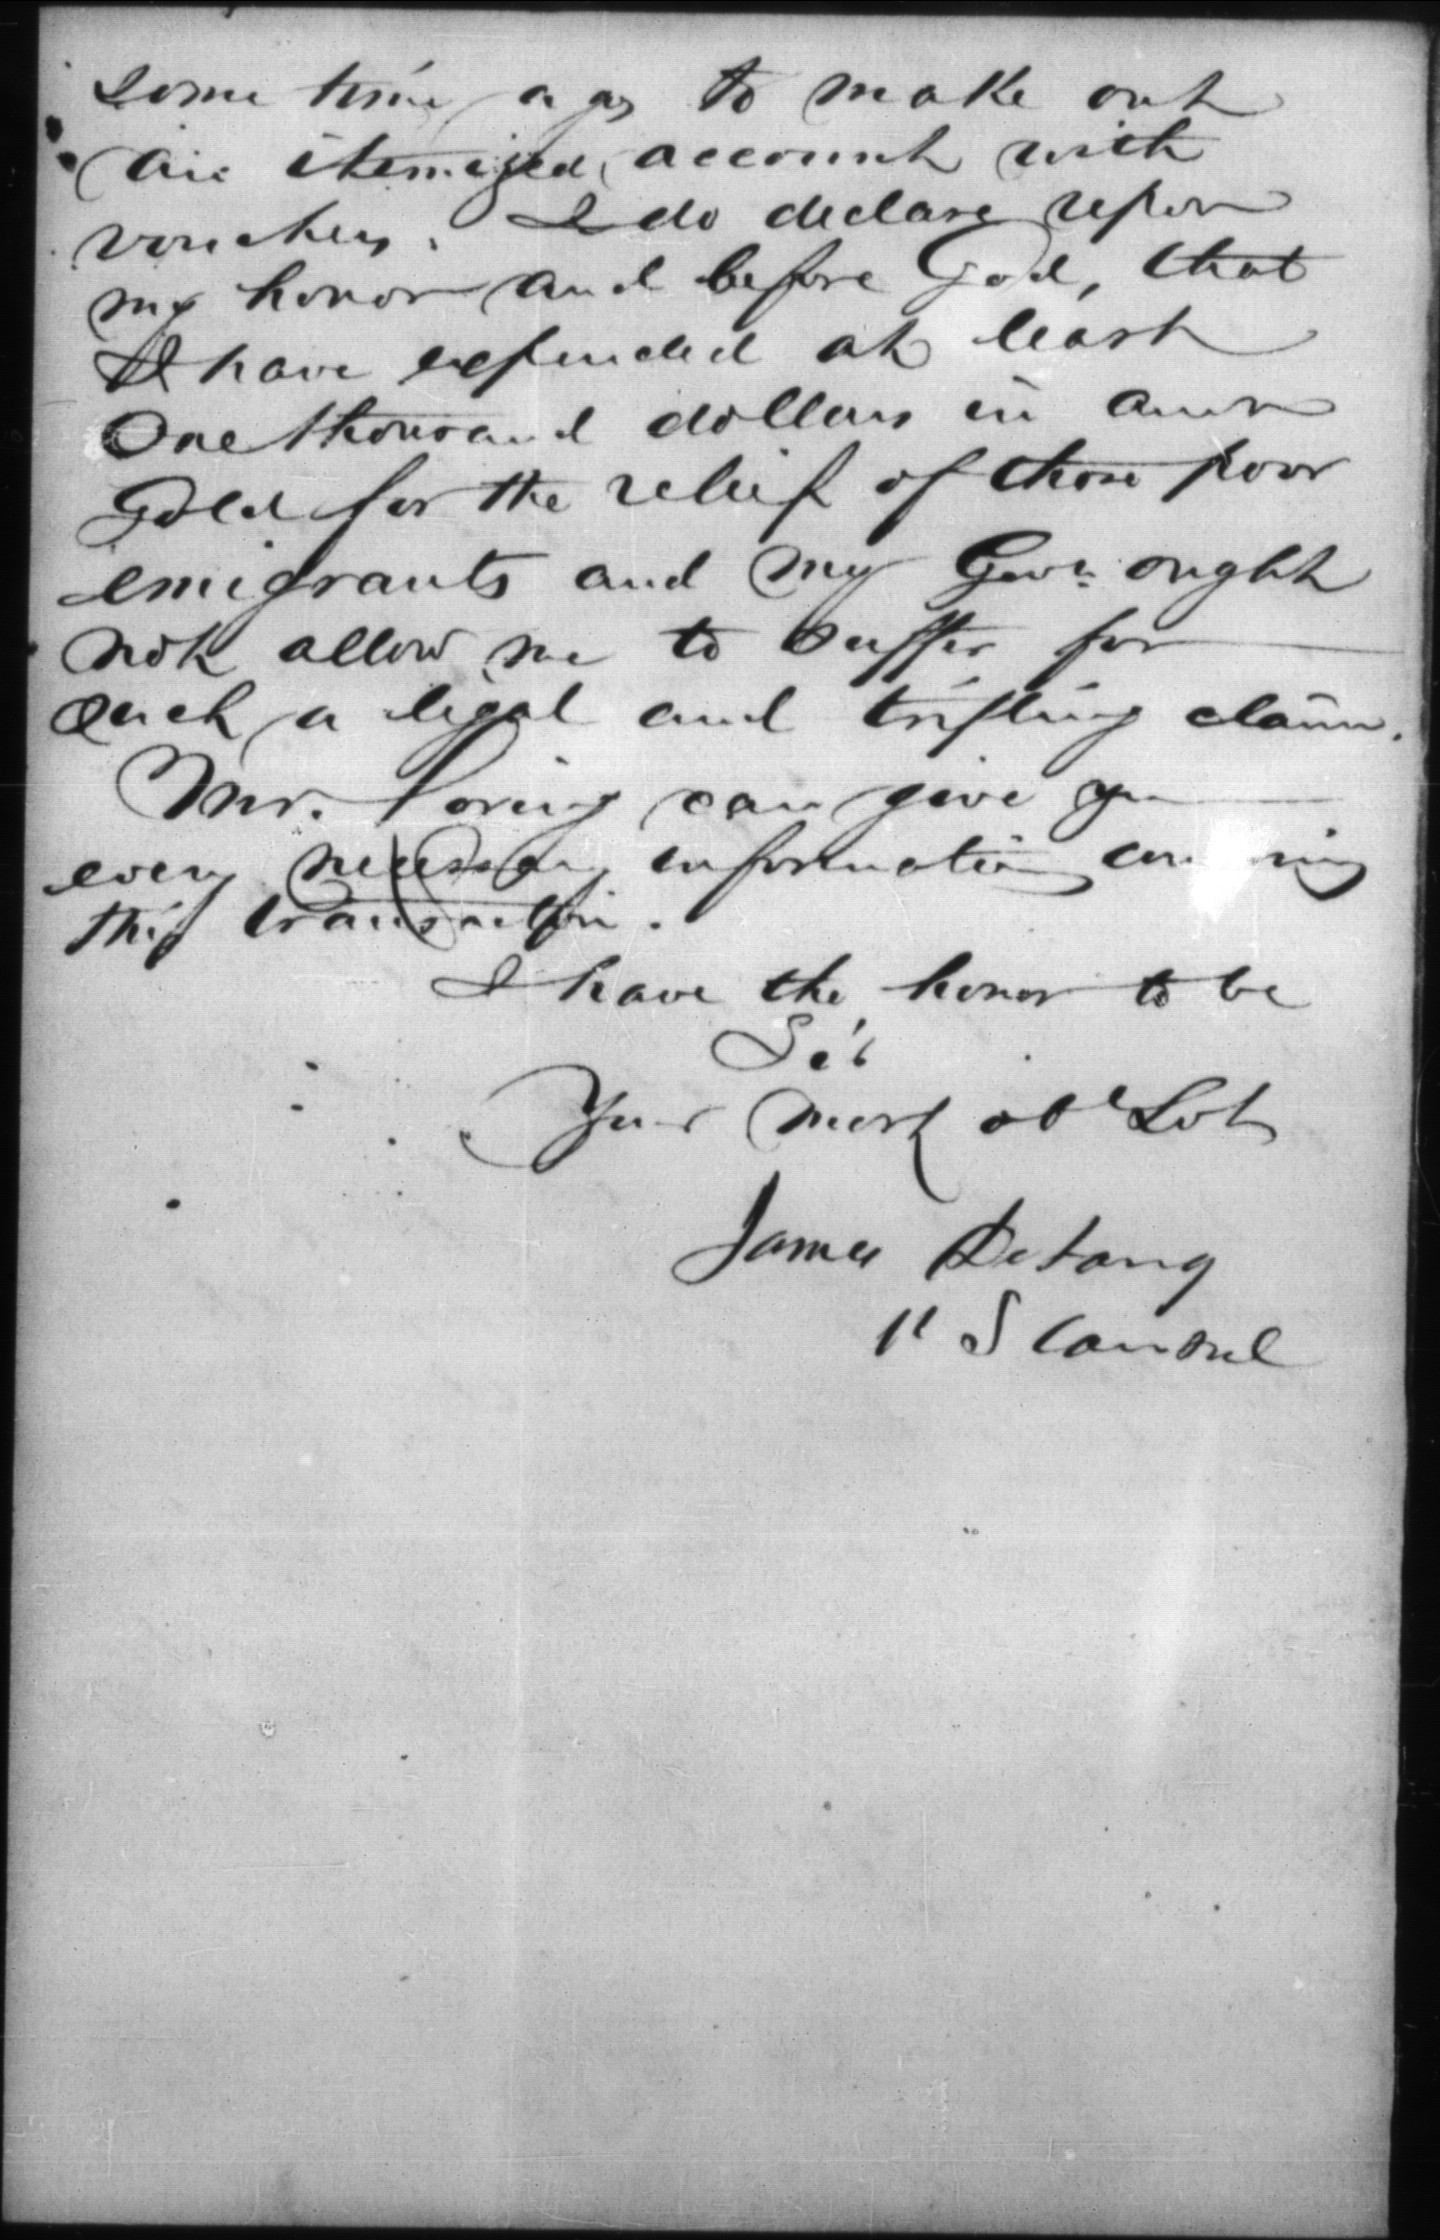 some time ago to make out
an itemized account with
vouchers. I do declare upon
my honor and before God, that
I have expended at least
One thousand dollars in amn
Gold for the relief of those poor
emigrants and my Govn: ought
not allow me to suffer for
such a legal and trifling claim.
Mr. Loring can give you
every necessary information concerning
this transaction.
I have the honor to be
Sir
Your most obt Svt
James DeLong
U S Consul